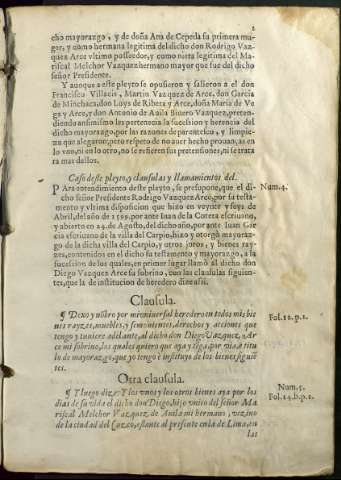 2
cho mayorazgo, y de doña Ana de Cepeda su primera mu-
ger, y como hermana legitima del dicho don Rodrigo Vaz-
quez Arce vltimo posseedor, y como nieta legitima del Ma-
riscal Melchor Vazquez hermano mayor que fue del dicho
señor Presidente.
Y aunque a este pleyto se opusieron y salieron a el don
Francisco Villacis, Martin Vazquez de Arce, don Garcia
de Minchaca, don Luys de Ribera y Arce, doña Maria de Ve
ga y Arce, y don Antonio de Auila Biuero Vazquez, preten-
diendo ansimismo les pertenecia la succession y herencia del
dicho mayorazgo, por las razones de parentesco, y limpie-
za que alegaron, pero respeto de no auer hecho prouança en
lo vno, ni en lo otro, no se refieren sus pretensiones, ni se trata
ra mas dellos.
Caso deste pleyto, y clausulas y llamamientos del.
PAra entendimiento deste pleyto, se presupone, que el di
cho señor Presidente Rodrigo Vazquez Arce, por su testa-
mento y vltima disposicion que hizo en veynte y seys de
Abril, del año de 1599. por ante Iuan de la Cotera escriuano,
y abierto en 24. de Agosto, del dicho año, por ante Iuan Gar
cia escriuano de la villa del Carpio, hizo y otorgò mayoraz-
go de la dicha villa del Carpio, y otros juros, y bienes ray-
zes, contenidos en el dicho su testamento y mayorazgo, a la
sucession de los quales, en primer lugar llamò al dicho don
Diego Vazquez Arce su sobrino, con las clausulas siguien-
tes, que la de institucion de heredero dize assi.
Num.4.
Clausula.
¶ Dexo y nõbro por mi vniuersal heredero en todos mis bie
nes rayzes, muebles, y semouientes, derechos y acciones que
tengo y tuuiere adelante, al dicho don Diego Vazquez, Ar-
ce mi sobrino, los quales quiero que aya y tẽga, por via, e titu
lo de mayorazgo, que yo tengo è instituyo de los bienes siguiẽ
tes.
Fol.12.p.1.
Otra clausula.
¶ Y luego dize: Y los vnos y los otros bienes aya por los
dias de su vida el dicho don Diego, hijo vnico del señor Ma
riscal Melchor Vazquez de Auila mi hermano, vezino
de la ciudad del Cuzco, estante al presente en la de Lima, en
las
Num.5.
Fol.14.b.p.1.